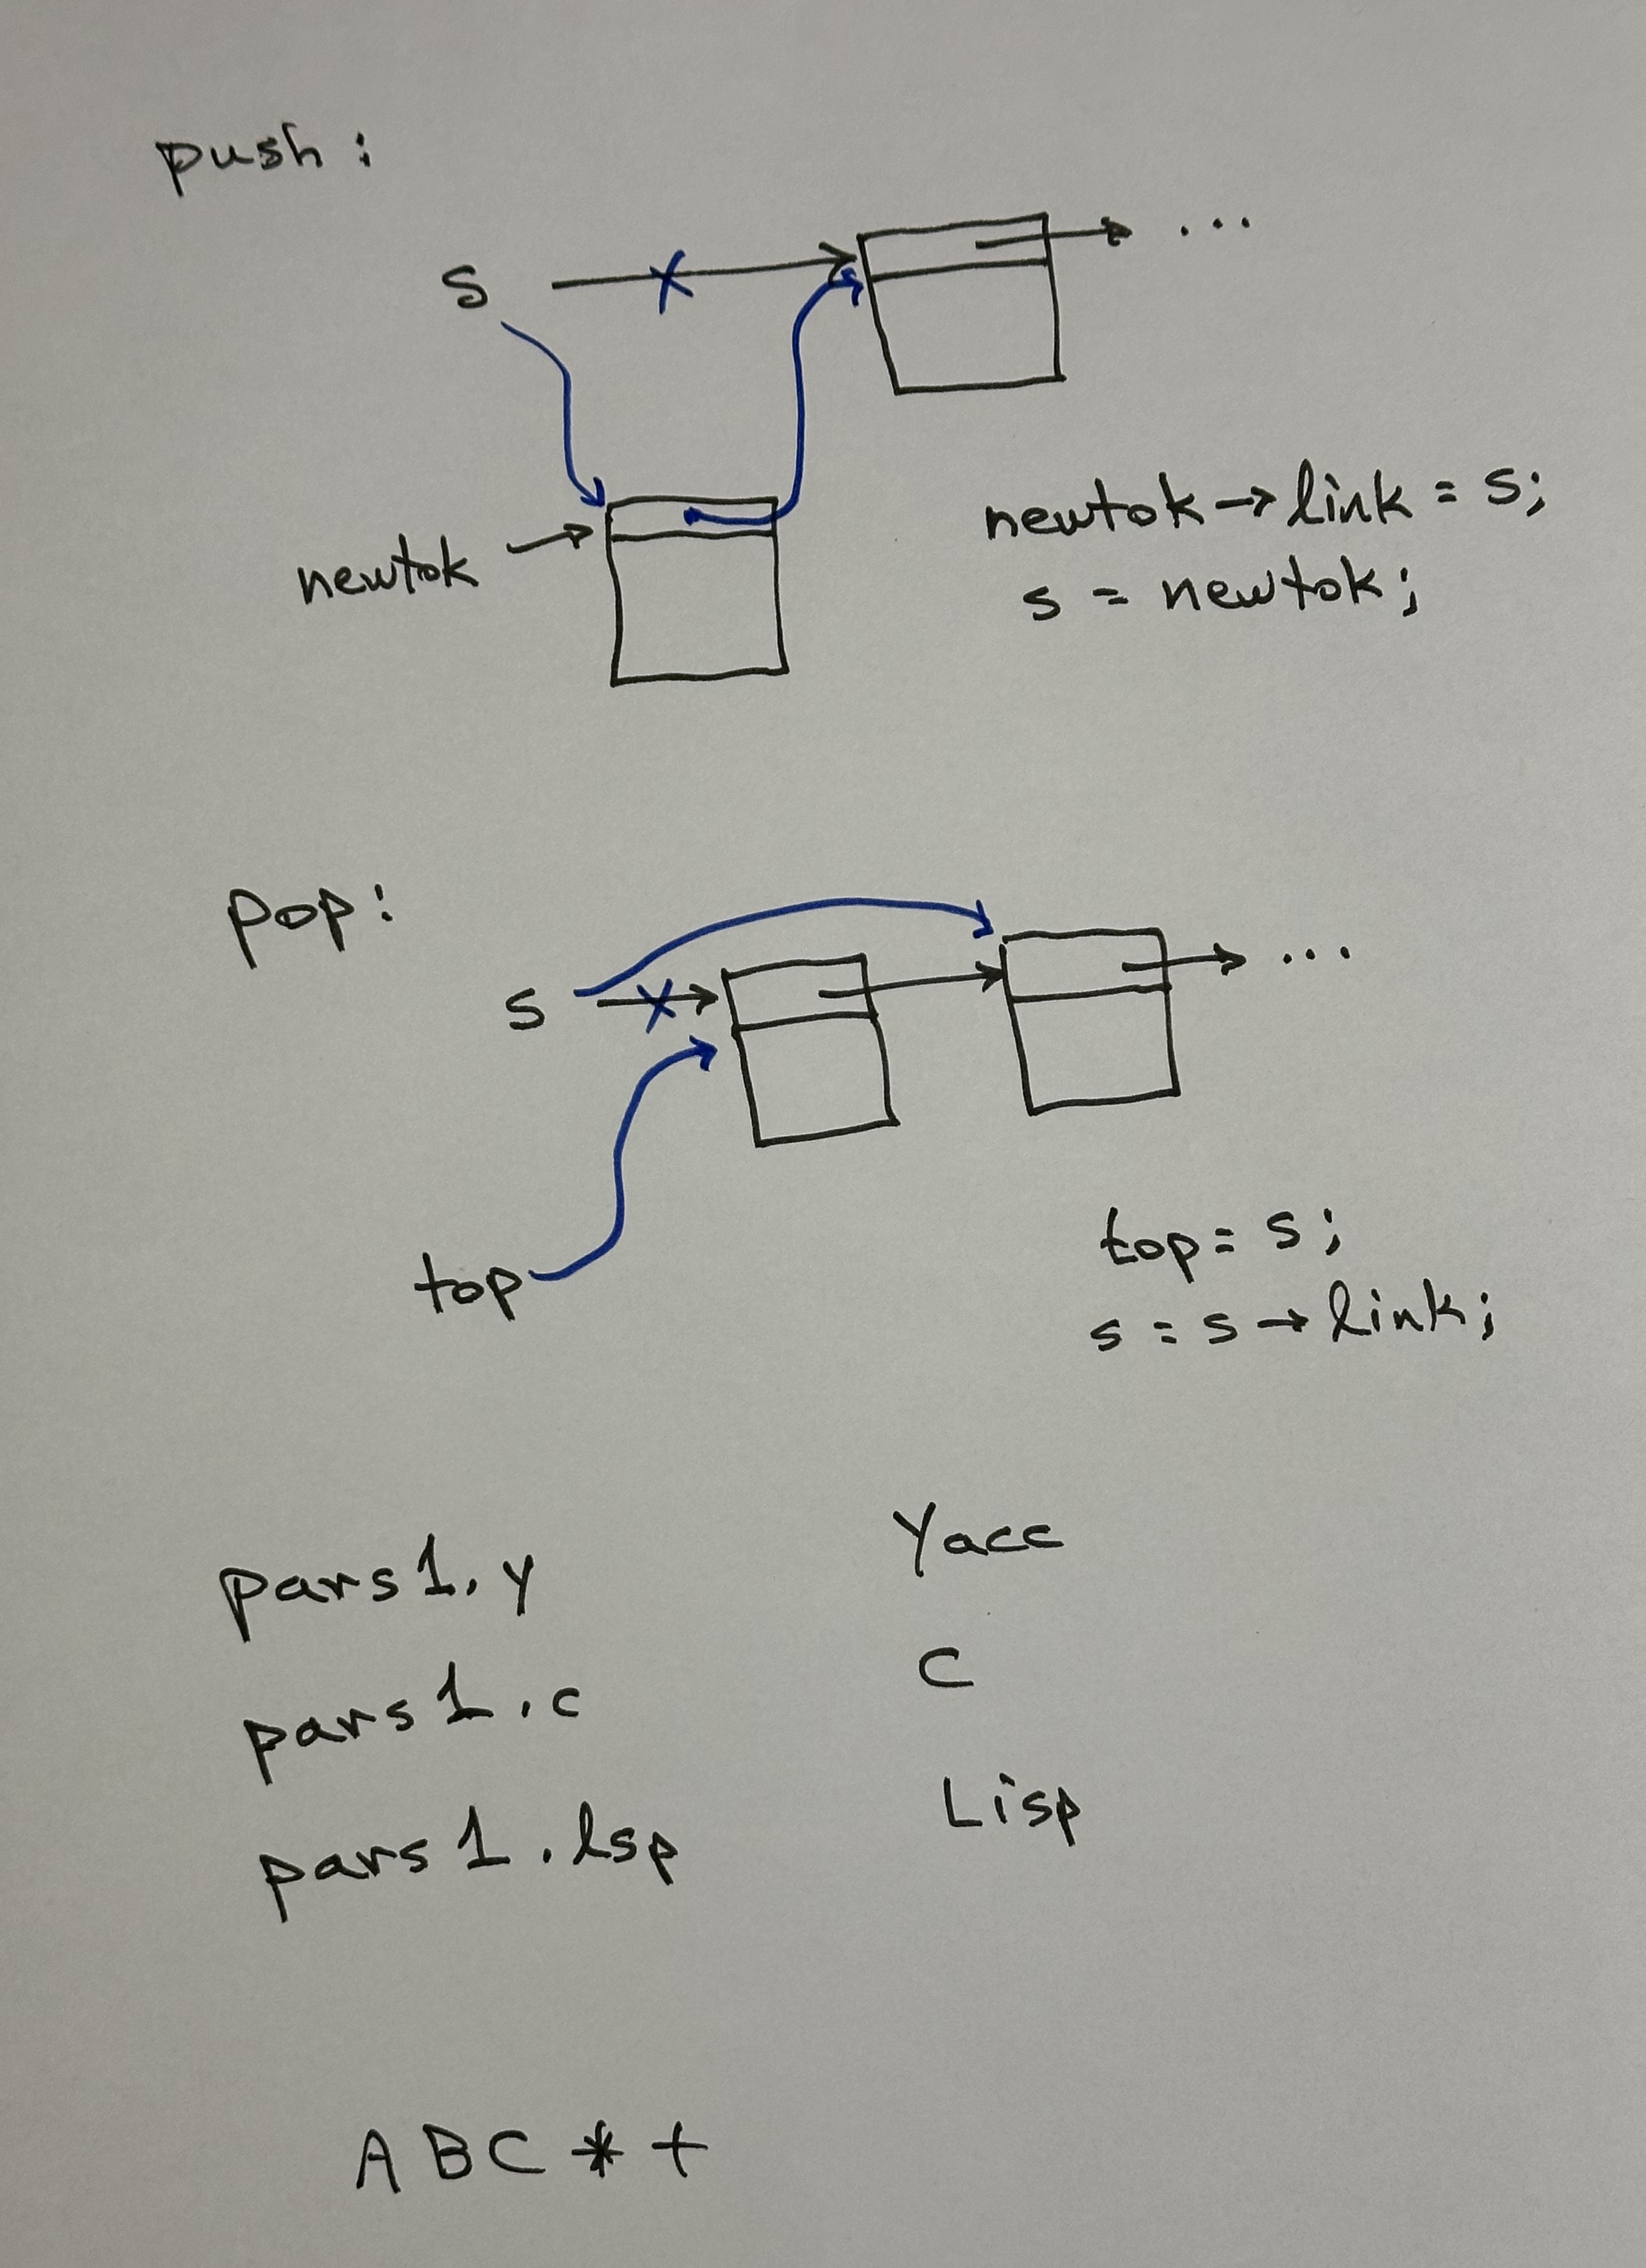 push :
s → ...
newtok → link = s;
newtok →
s = newtok;
pop:
s → ...
top = s;
top
s = s → link;
pars1.y Yacc
pars1.c C
pars1.lsp Lisp
A B C * +